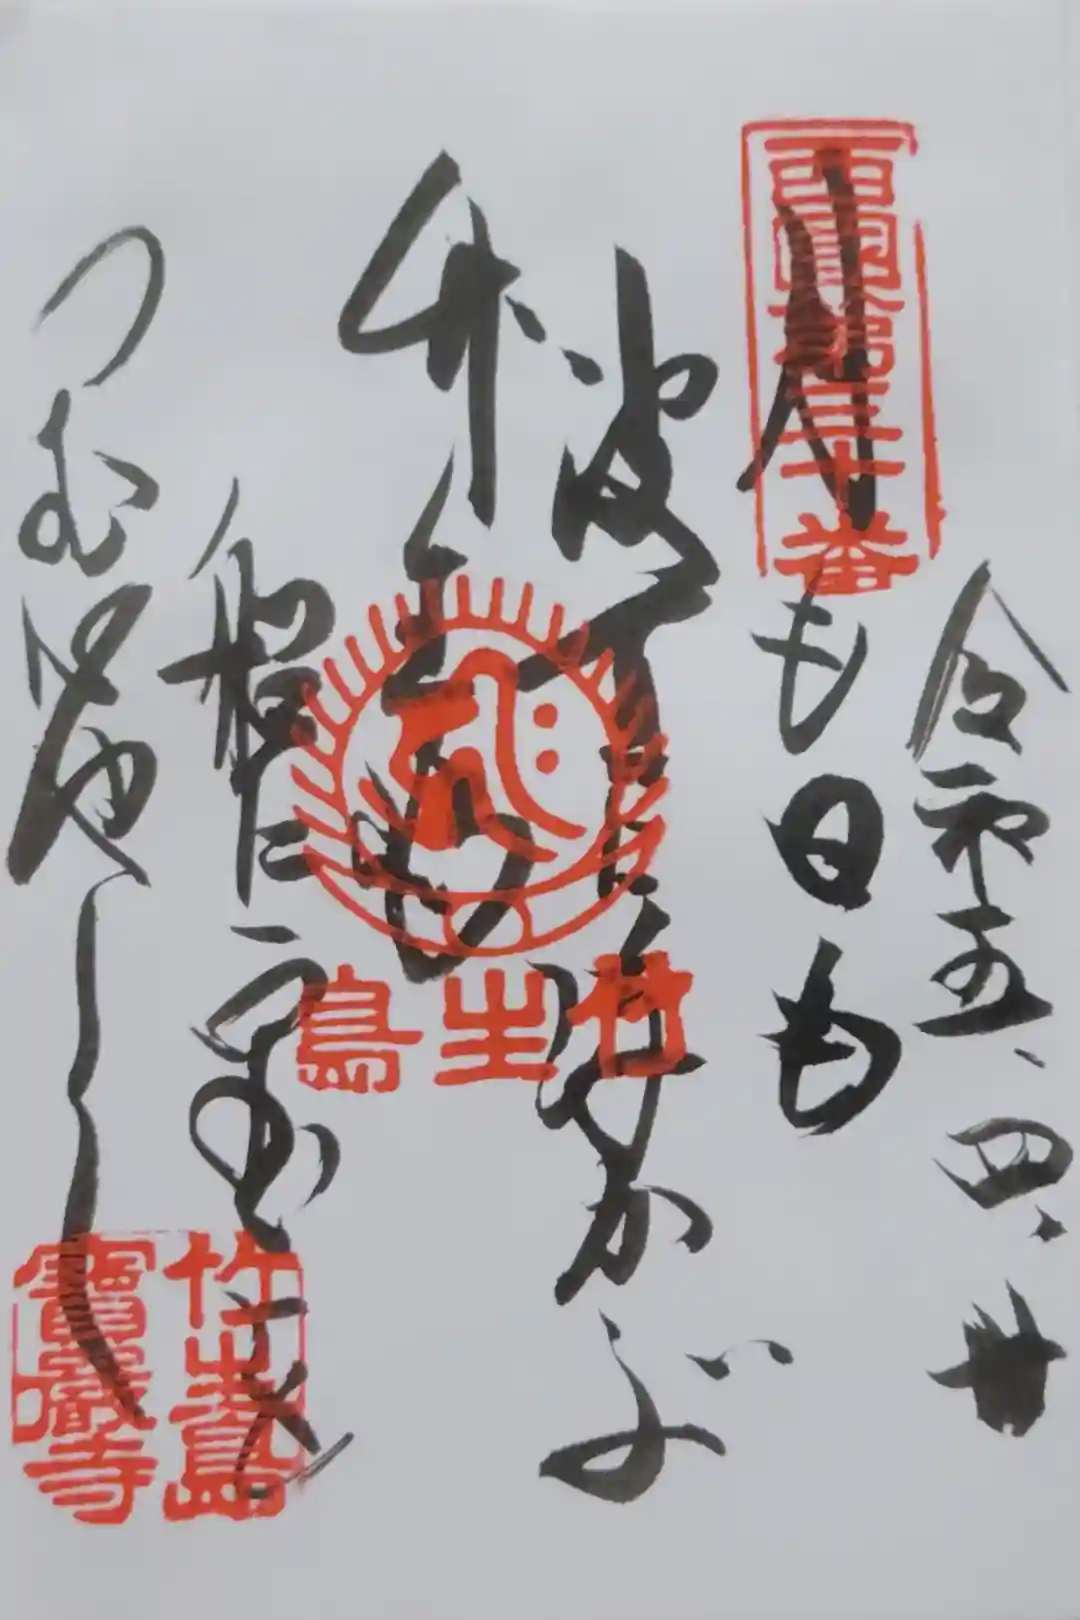 令和五、四、廿
西國第三十番
月も日も
波間に浮かぶ
竹生島
竹生島
船に宝を
つむ
竹生島
寶巌寺